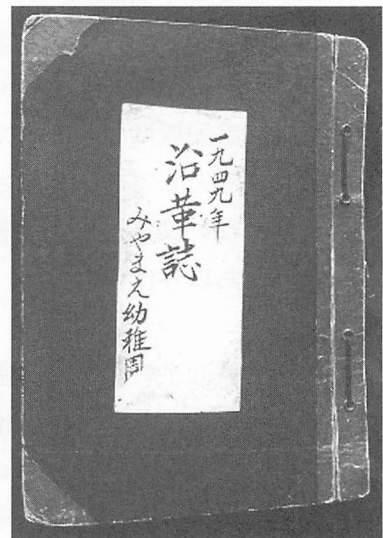 一九四九年
沿革誌
みやまえ幼稚園